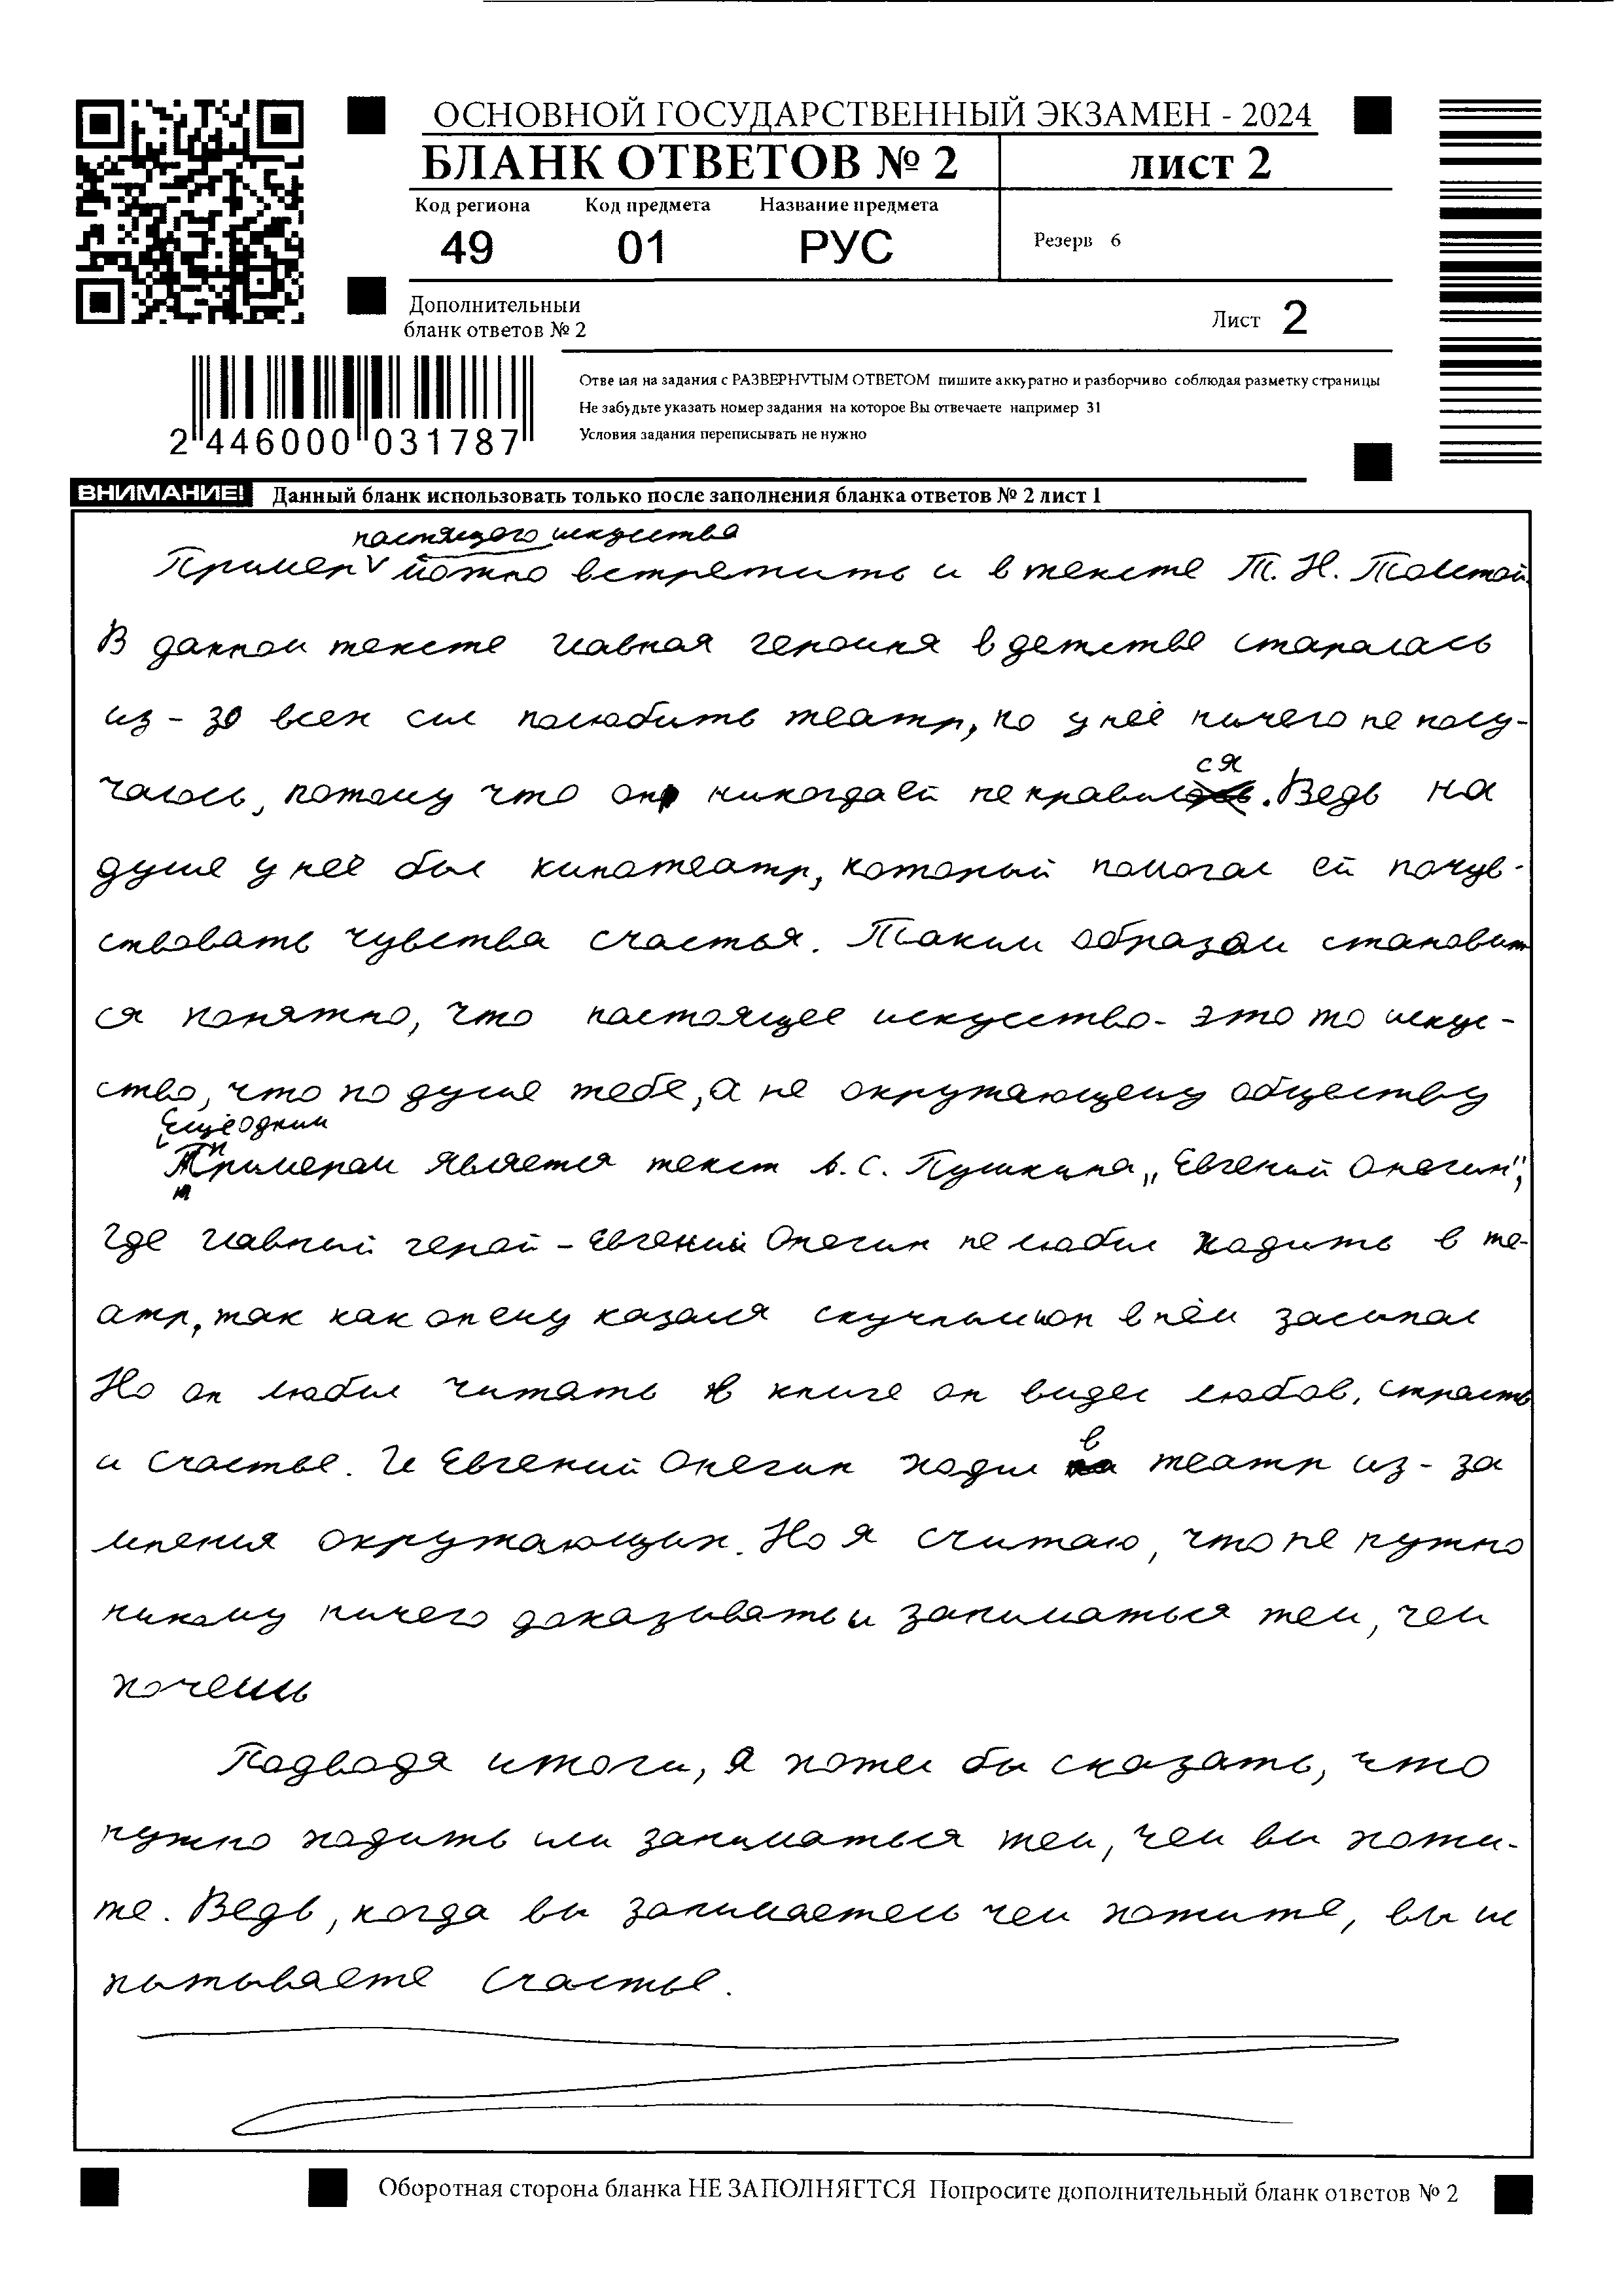 ОСНОВНОЙ ГОСУДАРСТВЕННЫЙ ЭКЗАМЕН - 2024
БЛАНК ОТВЕТОВ № 2
лист 2
Код региона Код предмета Название предмета
49 01 РУС
Резерв 6
Дополнительный
бланк ответов № 2
Лист 2
2 446000 031787
Отвечая на задания с РАЗВЕРНУТЫМ ОТВЕТОМ пишите аккуратно и разборчиво соблюдая разметку страницы
Не забудьте указать номер задания на которое Вы отвечаете например 31
Условия задания переписывать не нужно
ВНИМАНИЕ! Данный бланк использовать только после заполнения бланка ответов № 2 лист 1
настоящего искусства
Пример можно встретить и в тексте Т. Н. Толстой.
В данном тексте главная героиня в детстве старалась
из-зо всех сил полюбить театр, но у неё ничего не полу-
чалось, потому что он никогда ей не нравился. Ведь на
душе у неё был кинотеатр, который помогал ей почув-
ствовать чувства счастья. Таким образом становит
ся понятно, что настоящее искусство - это то искус-
ство, что по душе тебе, а не окружающему обществу
Ещё одним
примером является текст А. С. Пушкина „Евгений Онегин",
где главный герой - Евгений Онегин не любил ходить в те-
атр, так как он ему казался скучным и он в нём засыпал
Но он любил читать в книге он видел любов, страсть
и счастье. И Евгений Онегин ходил в театр из-за
мнения окружающих. Но я считаю, что не нужно
никому ничего доказывать и заниматься тем, чем
хочешь
Подводя итоги, я хотел бы сказать, что
нужно ходить или заниматься тем, чем вы хоти-
те. Ведь, когда вы занимаетесь чем хотите, вы ис
пытываете счастье.
Оборотная сторона бланка НЕ ЗАПОЛНЯЕТСЯ Попросите дополнительный бланк ответов № 2